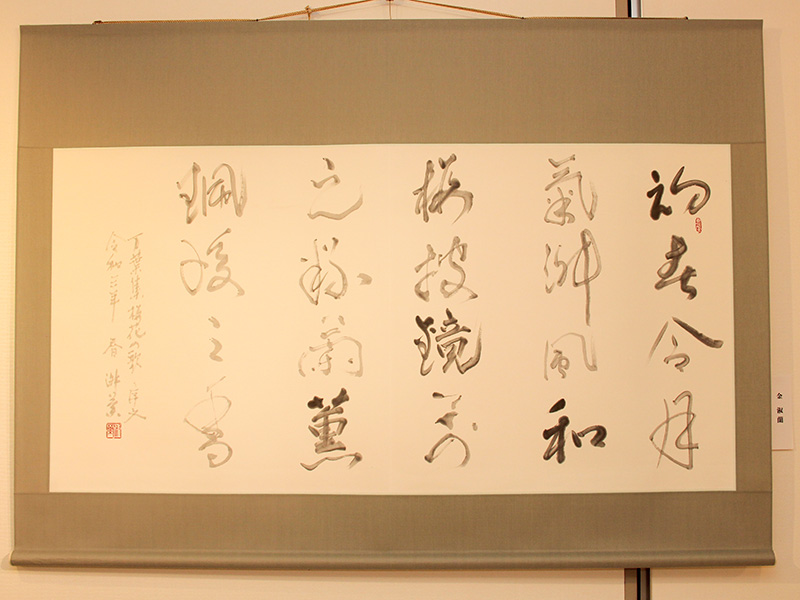 初春令月
氣淑風和
梅披鏡前
之粉蘭薫
珮後之香
万葉集梅花の歌 序文
令和二年 春 淑蘭
金 淑蘭